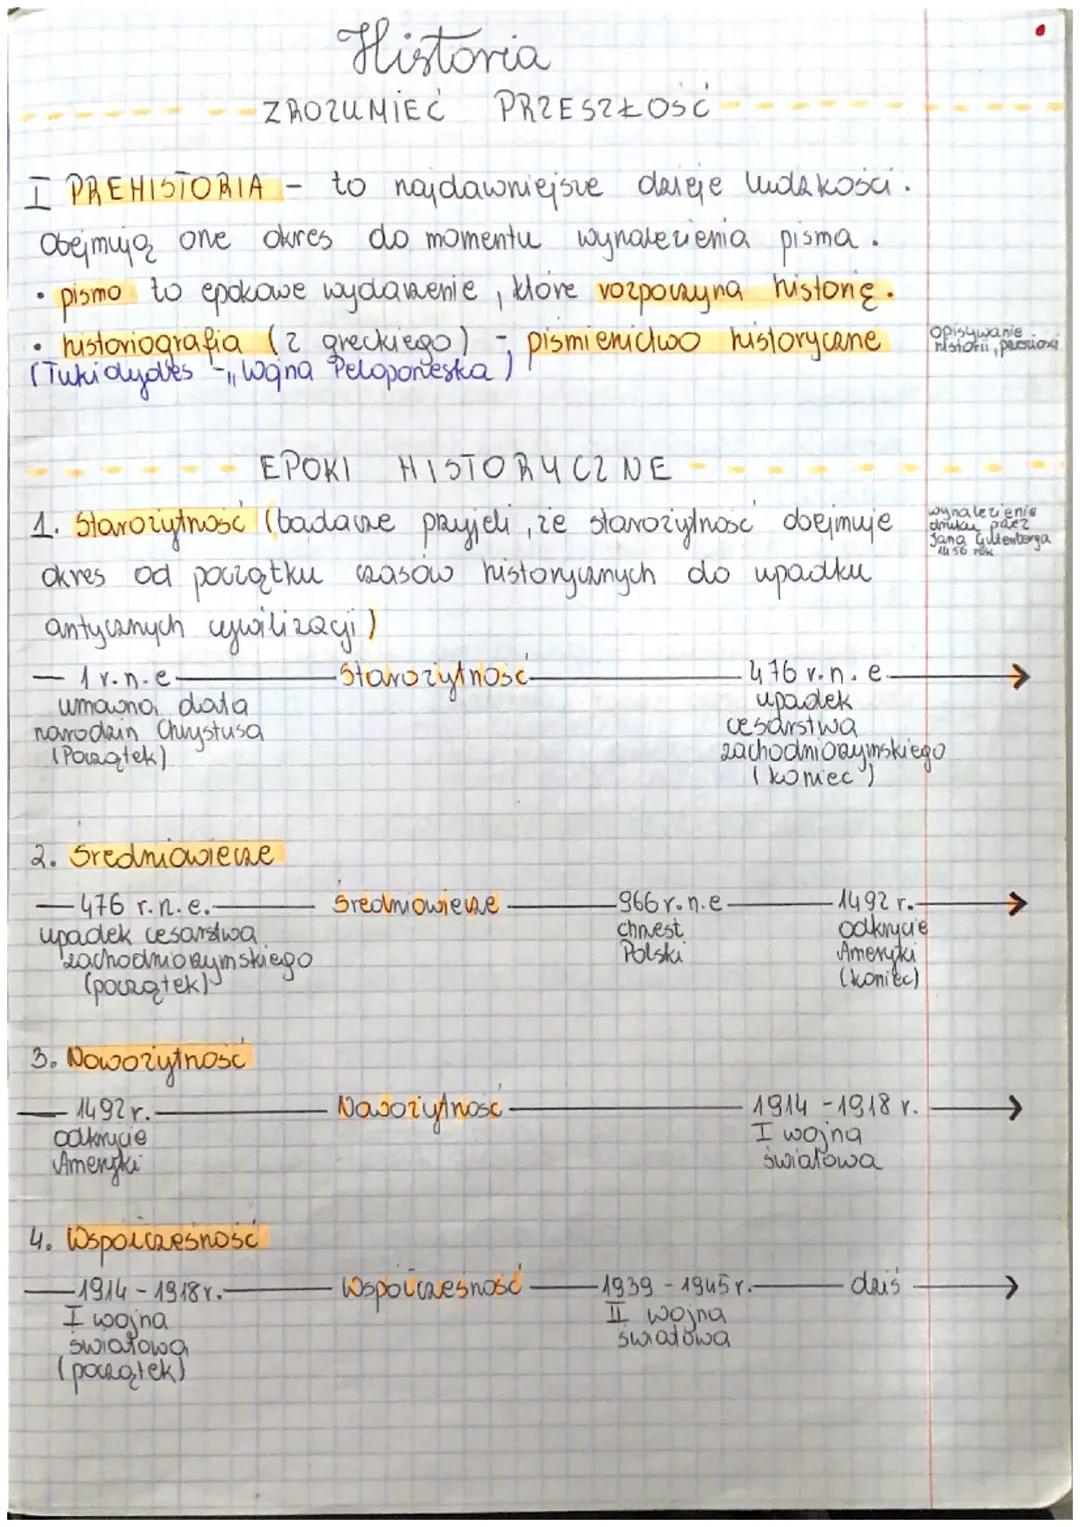 Historia
ZROZUMIEĆ PRZESZŁOŚĆ
I PREHISTORIA - to najdawniejsze dzieje ludzkości.
Obejmują one okres do momentu wynalezienia pisma.
• pismo to epokowe wydarzenie, które rozpoczyna historię.
• historiografia (z greckiego) - piśmienictwo historyczne
opisywanie
historii, przeszłości
(Tukidydes - „Wojna Peloponeska)
EPOKI HISTORYCZNE
1. Starożytność (badacze przyjęli, że starożytność obejmuje
okres od początku czasów historycznych do upadku
antycznych cywilizacji)
wynalezienie
druku przez
Jana Gutenberga
1456 rok
1 r.n.e Starożytność 476 r.n.e.
umowna data
narodzin Chrystusa
(Początek)
upadek
cesarstwa
zachodniorzymskiego
(koniec)
2. Średniowiecze
476 r.n.e. Średniowiecze 966 r.n.e 1492 r.
upadek cesarstwa
zachodniorzymskiego
(początek)
chrzest
Polski
odkrycie
Ameryki
(koniec)
3. Nowożytność
1492 r. Nowożytność 1914 - 1918 r.
odkrycie
Ameryki
I wojna
światowa
4. Współczesność
1914 - 1918r. Współczesność 1939 - 1945 r. dziś
I wojna
światowa
(początek)
II wojna
światowa